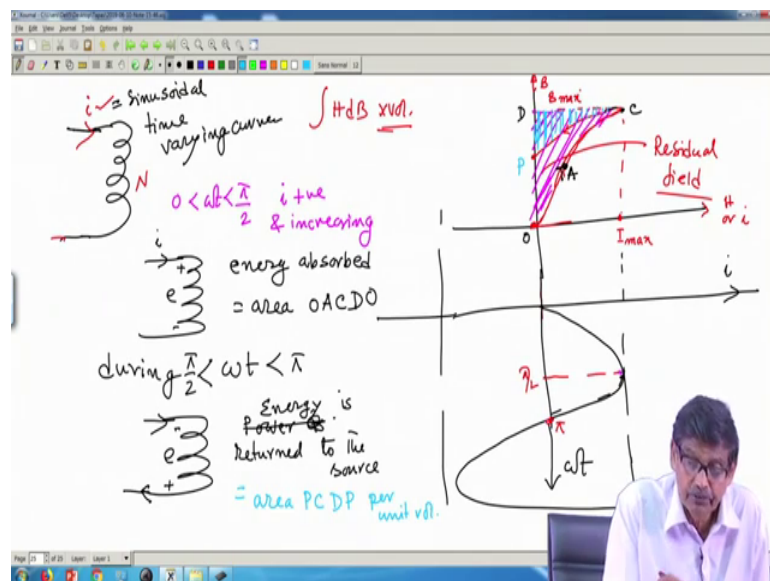 File Edit View Journal Tools Options Help
Sans Normal 12
i = sinusoidal
time
varying current
N
∫HdB x vol.
0 < ωt < π/2 i +ve
& increasing
i
+
e
-
energy absorbed
= area OACDO
during π/2 < ωt < π
-
e
+
Energy is
Power is
returned to the
source
= area PCDP per
unit vol.
B
D
Bmax
C
P
A
Residual
field
O
Imax
H
or i
i
π/2
π
ωt
Page 25 of 25 Layer: Layer 1